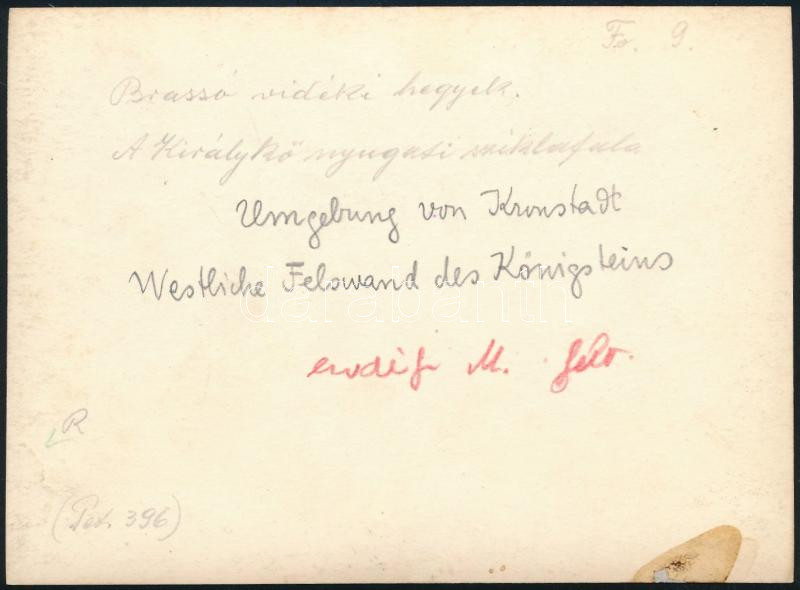 Fo. 9.
Brassó vidéki hegyek.
A Királykő nyugati sziklafala
Umgebung von Kronstadt
Westliche Felswand des Königsteins
darabanth
M. felv.
R
(Pet. 396)